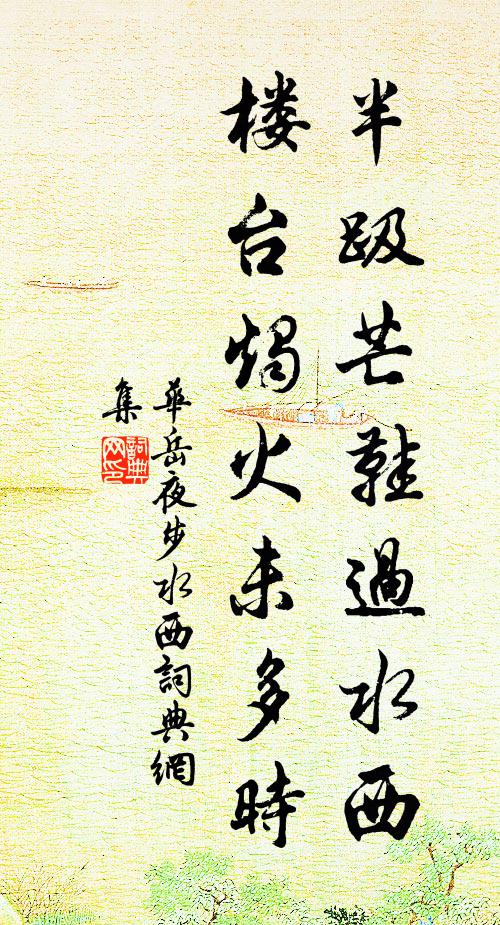 半趿芒鞋過水西
楼台燭火未多時
華岳夜步水西詞典網
集
詞典
网印